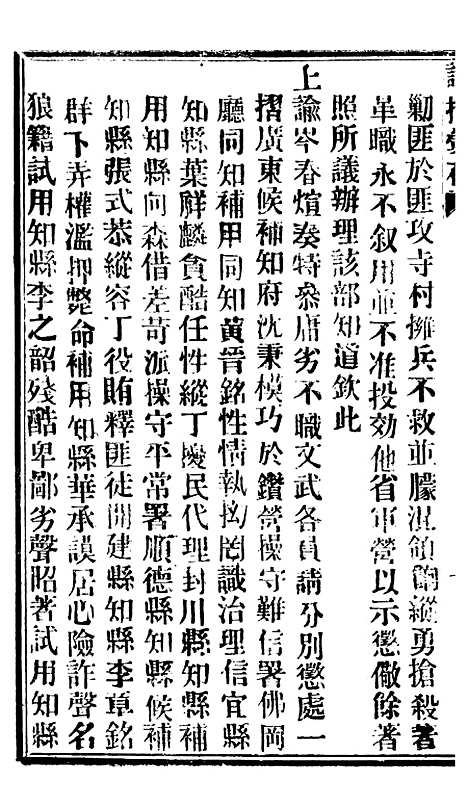 諭摺彙存
勦匪於匪攻寺村擁兵不救並朦混領餉縱勇搶殺著
革職永不叙用並不准投効他省軍營以示懲儆餘著
照所議辦理該部知道欽此
上諭岑春煊奏特叅庸劣不職文武各員請分別懲處一
摺廣東候補知府沈秉模巧於鑽營操守難信署佛岡
廳同知補用同知黃晉銘性情執拗罔識治理信宜縣
知縣葉䍧麟貪酷任性縱丁擾民代理封川縣知縣補
用知縣何森借差苛派操守平常署順德縣知縣候補
知縣張式恭縱容丁役賄釋匪徒開建縣知縣李章銘
群下弄權濫押斃命補用知縣華承謨居心險詐聲名
狼籍試用知縣李之韶殘酷卑鄙劣聲昭著試用知縣